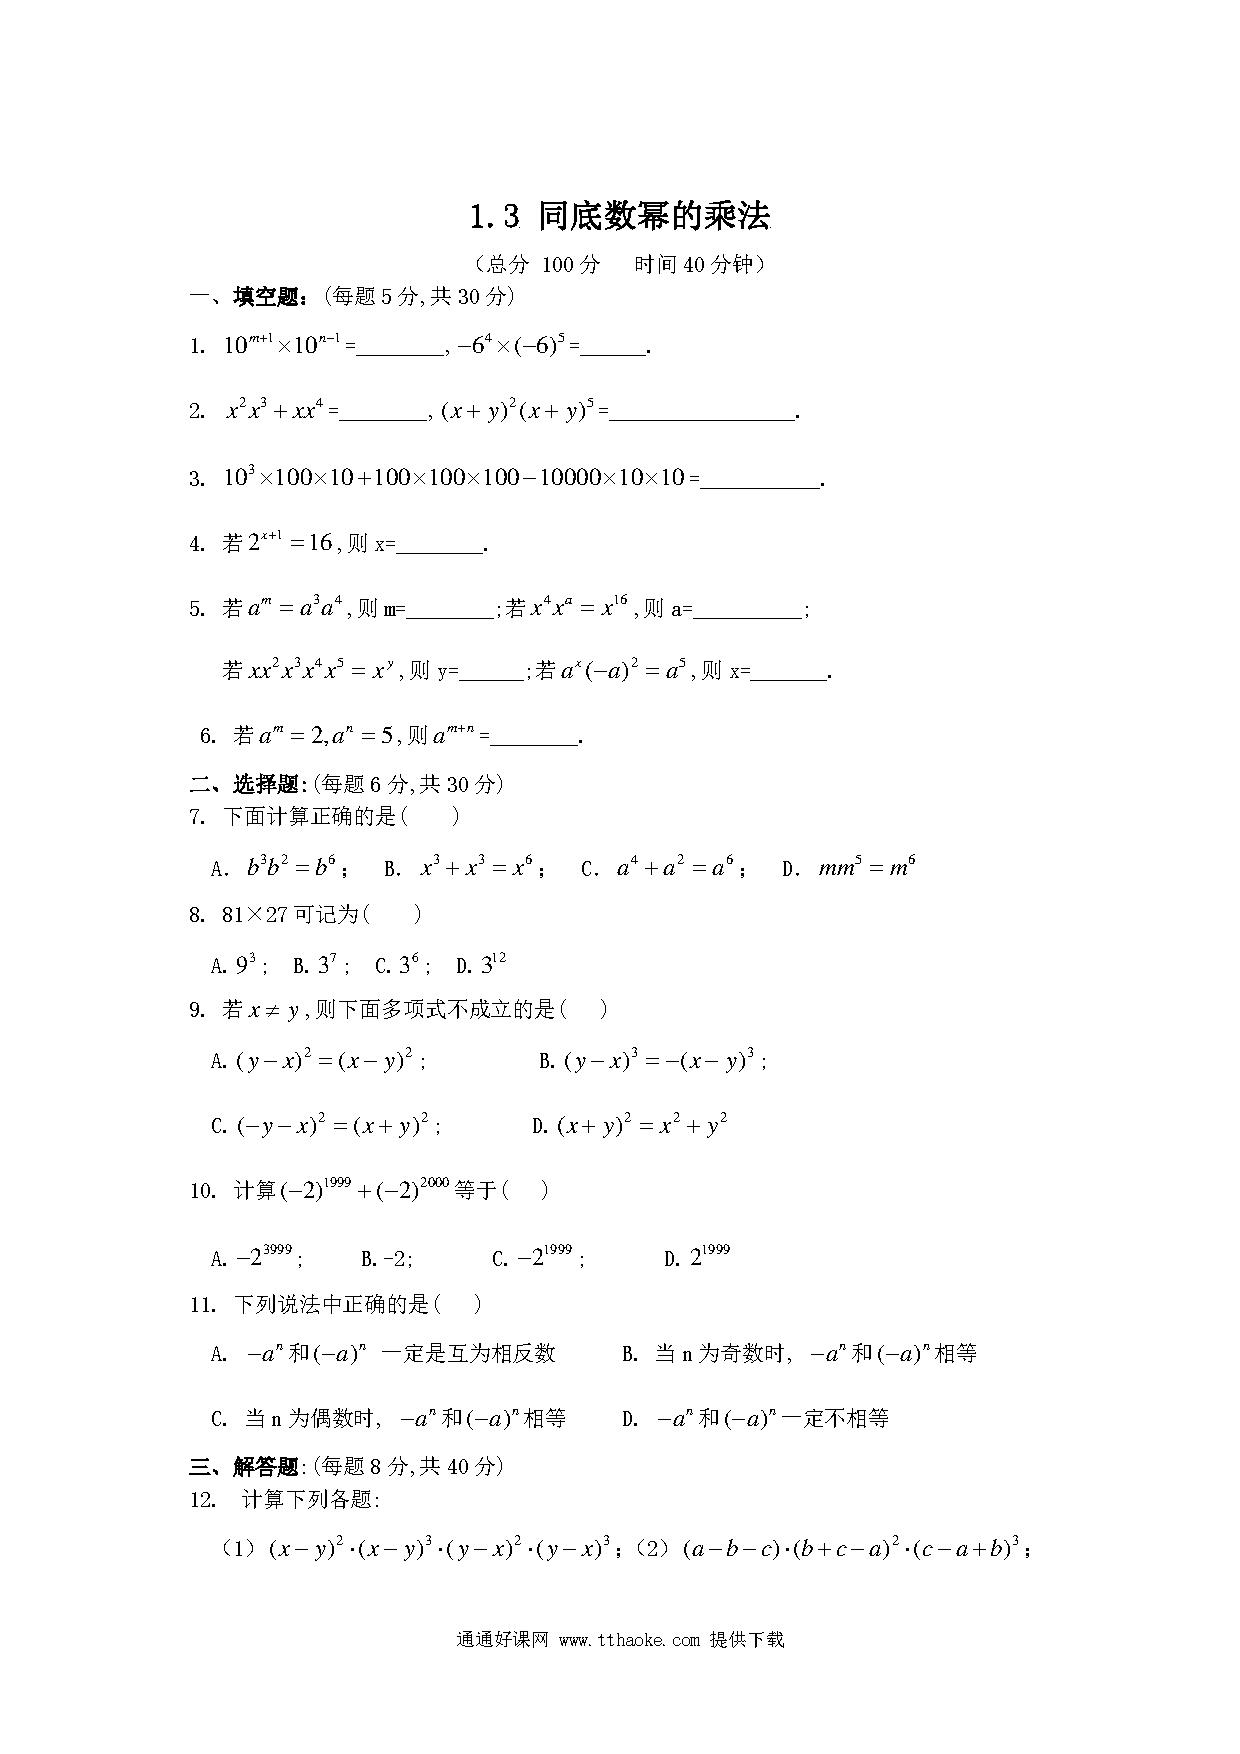 1.3 同底数幂的乘法
（总分 100分 时间40分钟）
一、填空题：(每题5分,共30分)
1. 10^{m+1}×10^{n−1}=________,−6^4×(−6)^5=______.
2. x^2x^3+xx^4=________,(x+y)^2(x+y)^5=_________________.
3. 10^3×100×10+100×100×100−10000×10×10=___________.
4. 若2^{x+1}=16,则x=________.
5. 若a^m=a^3a^4,则m=________;若x^4x^a=x^{16},则a=__________;
若xx^2x^3x^4x^5=x^y,则y=______;若a^x(−a)^2=a^5,则x=_______.
6. 若a^m=2,a^n=5,则a^{m+n}=________.
二、选择题:(每题6分,共30分)
7. 下面计算正确的是( )
A．b^3b^2=b^6； B．x^3+x^3=x^6； C．a^4+a^2=a^6； D．mm^5=m^6
8. 81×27可记为( )
A.9^3; B.3^7; C.3^6; D.3^{12}
9. 若x≠y,则下面多项式不成立的是( )
A.(y−x)^2=(x−y)^2; B.(y−x)^3=−(x−y)^3;
C.(−y−x)^2=(x+y)^2; D.(x+y)^2=x^2+y^2
10. 计算(−2)^{1999}+(−2)^{2000}等于( )
A.−2^{3999}; B.-2; C.−2^{1999}; D.2^{1999}
11. 下列说法中正确的是( )
A. −a^n和(−a)^n 一定是互为相反数 B. 当n为奇数时, −a^n和(−a)^n相等
C. 当n为偶数时, −a^n和(−a)^n相等 D. −a^n和(−a)^n一定不相等
三、解答题:(每题8分,共40分)
12. 计算下列各题:
（1）(x−y)^2·(x−y)^3·(y−x)^2·(y−x)^3；（2）(a−b−c)·(b+c−a)^2·(c−a+b)^3；
通通好课网 www.tthaoke.com 提供下载